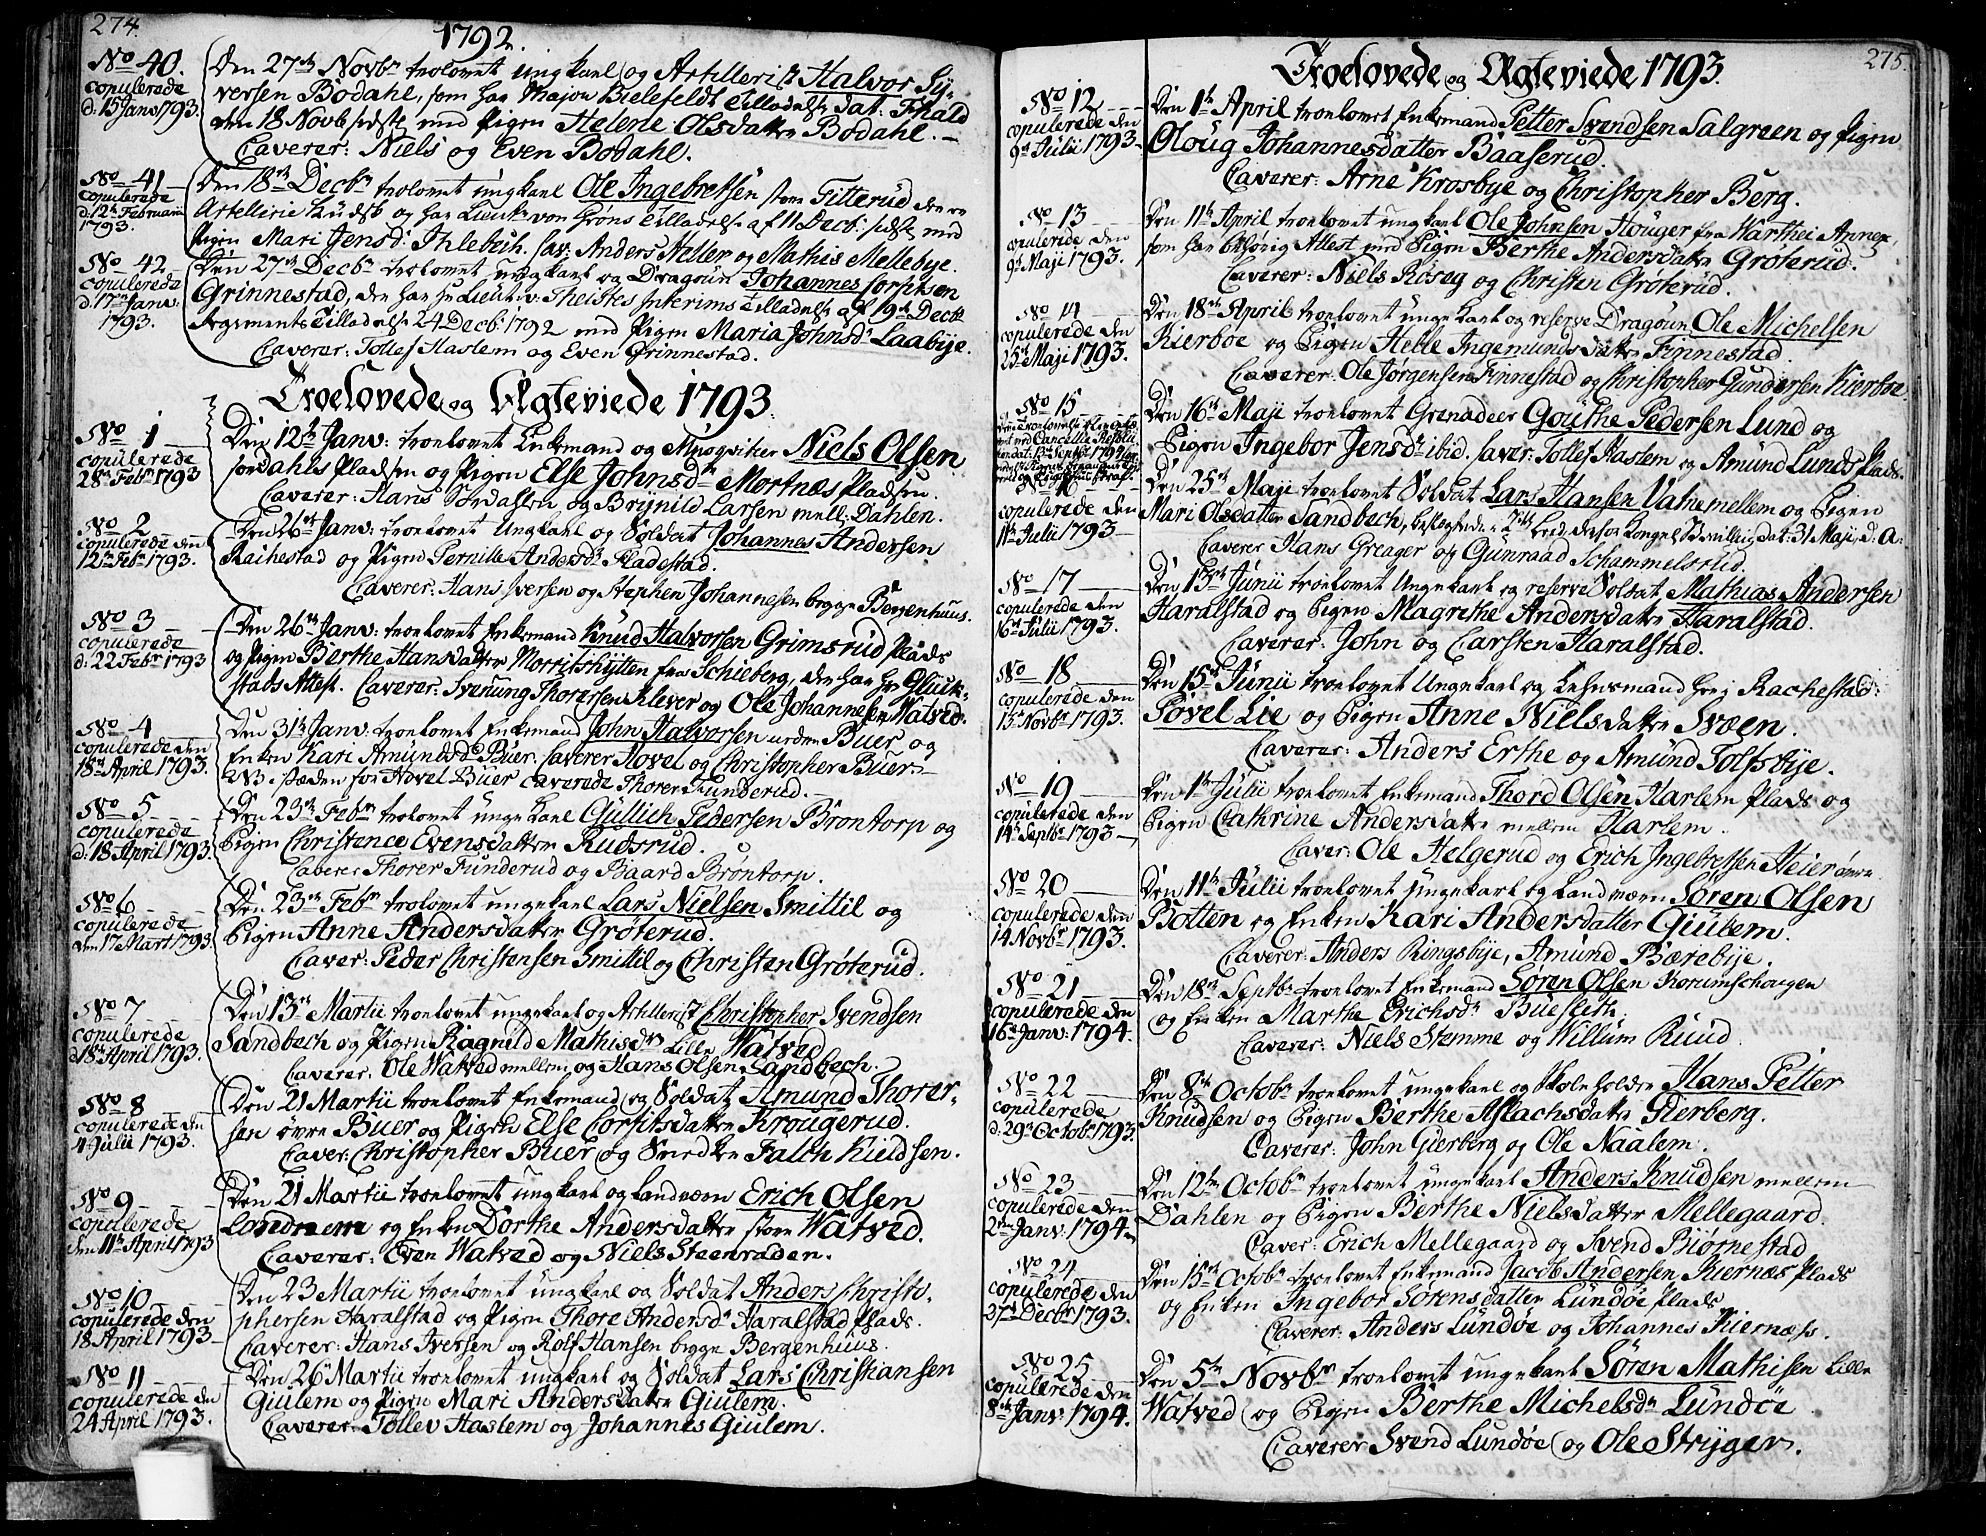 274.
1792.
No 40.
copulerede
d: 15 Jan: 1793.
Den 27de Novbr trolovet ungkarl og Artillerist Halvor Sy-
versen Bodahl, som har Major Bielefeldt Tilladelse dat: Fhald
den 18 Novb: sidste med Pigen Helene Olsdatter Bodahl.
Caverer: Niels og Even Bodahl.
No 41
copulerede
d: 12te Februarii
1793.
Den 18de Decbr trolovet ungkarl Ole Ingebretsen store Fitterud den er
Artellerie Kudsk og har Lieutn: von Grøns Tilladelse af 11 Decb: sidst med
Pigen Mari Jensd: Ihlebech. Cav: Anders Aeller og Mathis Mellebye.
No 42
copulerede
d: 17de Janv:
1793.
Den 27de Decbr trolovet ungkarl og Dragoun Johannes Corfitsen
Grinnestad, den har Hr Lieutn: v: Theistes Interims Tilladelse af 19de Decbr
Regiments Tilladelse 24 Decb: 1792 med Pigen Maria Johnsd: Laabye.
Caverer: Tollef Haslem og Even Grinnestad.
Troelovede og Ægteviede 1793.
No 1
copulerede
28de Febr: 1793
Den 12te Janv: troelovet Enkemand og Musqviker Niels Olsen
Jordahls Pladsen og Pigen Else Johnsdr Mortnæs Pladsen.
Caverer: Hans Jordahlen og Brynild Larsen mell: Dahlen.
No 2
copulerede den
12te Febr: 1793.
Den 26de Janv: troelovet Ungkarl og Soldat Johannes Andersen
Rachestad og Pigen Pernille Andersdr Fladestad.
Caverer: Hans Iversen og Stephen Johannesen begge Bergenhuus.
No 3
copulerede
d: 22 Febr 1793
Den 26de Janv: troelovet Enkemand Knud Halvorsen Grimsrud Plads
og Pigen Berthe Hansdatter Morritshytten fra Schieberg, den har Hr Gluck-
stads Attest. Caverer: Svenung Thorersen Klever og Ole Johannesen Watved.
No 4
copulerede den
18de April 1793.
Den 31te Janv: troelovet Enkemand John Halvorsen neden Buer og
Enken Kari Amundsdr Buer. Caverer Hovel og Christopher Buer
NB. steden for Hovel Buer caverede Thorer Funderud.
No 5
copulerede
d: 18 April 1793.
Den 23de Febr troelovet ungekarl Gullich Pedersen Brøntorp og
Pigen Christence Evensdatter Rudsrud.
Caverer Thorer Funderud og Baard Brøntorp.
No 6
copulerede
den 17 Mart 1793.
Den 23de Febr trolovet ungekarl Lars Nielsen Smittil og
Pigen Anne Andersdatter Grøterud.
Caver: Peder Christensen Smittil og Christen Grøterud.
No 7
copulerede
d: 18de April 1793.
Den 13de Martii troelovet ungekarl og Artillerist Christopher Svendsen
Sandbech og Pigen Ragnild Mathisdr Lille Watved.
Caverer: Ole Watved mellem og Hans Olsen Sandbech.
No 8
copulerede den
4 Julii 1793.
Den 21 Martii troelovet Enkemand og Soldat Amund Thorer-
sen øvre Buer og Pigen Else Corfitsdatter Krougerud.
Caver: Christopher Buer og Smedken Falch Kuidsen.
No 9
copulerede
den 11te April 1793
Den 21 Martii troelovet ungkarl og Landværn Erich Olsen
Londnem og Enken Dorthe Andersdatter store Watved.
Caverer: Even Watved og Niels Steenraden.
No 10
copulerede den
18 April 1793
Den 23 Martii troelovet ungekarl og Soldat Anders Christo-
phersen Haralstad og Pigen Thore Andersdr Haralstad Plads.
Caverer: Hans Iversen og Rolf Hansen begge Bergenhuus.
No 11
copulerede den
24 April 1793.
Den 26 Martii troelovet ungekarl og Soldat Lars Christiansen
Giulem og Pigen Mari Andersdatter Giulem.
Caverer: Tollev Haslem og Johannes Giulem.
Troelovede og Ægteviede 1793.
275.
No 12
copulerede den
9de Julii 1793
Den 1te April troelovet Enkemand Petter Svendsen Salgreen og Pigen
Oloug Johannesdatter Baaserud.
Caverer: Arne Krosbye og Christopher Berg.
No 13
copulerede den
9de Maji 1793.
Den 11te April troelovet ungkarl Ole Johnsen Houger fra Warthei Annex,
som har behørig Attest med Pigen Berthe Andersdatter Grøterud.
Caverer: Niels Roseg og Christen Grøterud.
No 14
copulerede den
25de Maji 1793.
Den 18de April troelovet ungekarl og reserve Dragoun Ole Michelsen
Kierboe og Pigen Helle Ingemundsdatter Finnestad.
Caverer: Ole Jørgensen Finnestad og Christopher Gundersen Kierboe.
No 15
Den 16de Maji troelovet Grenadeer Gouthe Pedersen Lund og
Pigen Ingebor Jensdr ibid. Caver: Tollef Haslem og Amund Lunds Plads.
No 16
copulerede den
11te Julii 1793
Den 25de Maji troelovet Soldat Lars Hansen Vahemellem og Pigen
Mari Olsdatter Sandbech, beslegtede i 2det Leed, derfor Kongel: Bevilling dat: 31 Maji d: A:
Caverer Hans Greager og Gunraad Schammelsrud.
No 17
copulerede den
16de Julii 1793.
Den 13de Junii troelovet Ungekarl og reserve Soldat Mathias Andersen
Haralstad og Pigen Magrethe Andersdatter Haralstad.
Caverer: John og Carsten Haralstad.
No 18
copulerede den
15de Novbr 1793.
Den 15de Junii troelovet Ungekarl og Lehnsmand her i Rachestad:
Povel Lie og Pigen Anne Nielsdatter Svæen.
Caverer: Anders Erthe og Amund Tolfsbye.
No 19
copulerede den
14de Septbr 1793
Den 1te Julii troelovet Enkemand Thord Olsen Harlem Plads og
Pigen Cathrine Andersdatter mellem Harlem.
Caver: Ole Helgerud og Erich Ingebretsen Heier øvre.
No 20
copulerede den
14 Novbr 1793.
Den 11te Julii troelovet Ungekarl og Landværn Søren Olsen
Botten og Enken Kari Andersdatter Giulem.
Caverer: Anders Ringsbye, Amund Bærebye.
No 21
copulerede den
16de Janv: 1794.
Den 18de Septbr troelovet Enkemand Søren Olsen Korumschougen
og Enken Marthe Erichsdr Buesleth.
Caverer: Niels Stemme og Willum Ruud.
No 22
copulerede
d: 29de Octobr 1793.
Den 8de Octobr troelovet ungekarl og Skoleholder Hans Petter
Knudsen og Pigen Berthe Aslachsdatter Gierberg.
Caverer: John Gierberg og Ole Naalem.
No 23
copulerede den
2den Janv: 1794
Den 12te Octobr troelovet ungekarl Anders Knudsen mellem
Dahlen og Pigen Berthe Nielsdatter Mellegaard.
Caver: Erich Mellegaard og Svend Biørnestad
No 24
copulerede den
27de Decbr 1793.
Den 15de Octobr troelovet Enkemand Jacob Andersen Kiernæs Plads
og Enken Ingebor Sørensdatter Lundøe Plads
Caverer: Anders Lundøe og Johannes Kiernæss.
No 25
copulerede den
8de Janv: 1794.
Den 5te Novbr troelovet ungekarl Søren Mathisen Lille
Watved og Pigen Berthe Michelsdr Lundøe
Caverer Svend Lundøe og Ole Stryger.